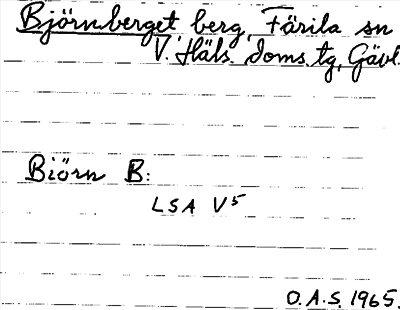 Björnberget berg, Färila sn
V. Häls. doms. tg, Gävl.
Biörn B:
LSA V5
O.A.S. 1965.